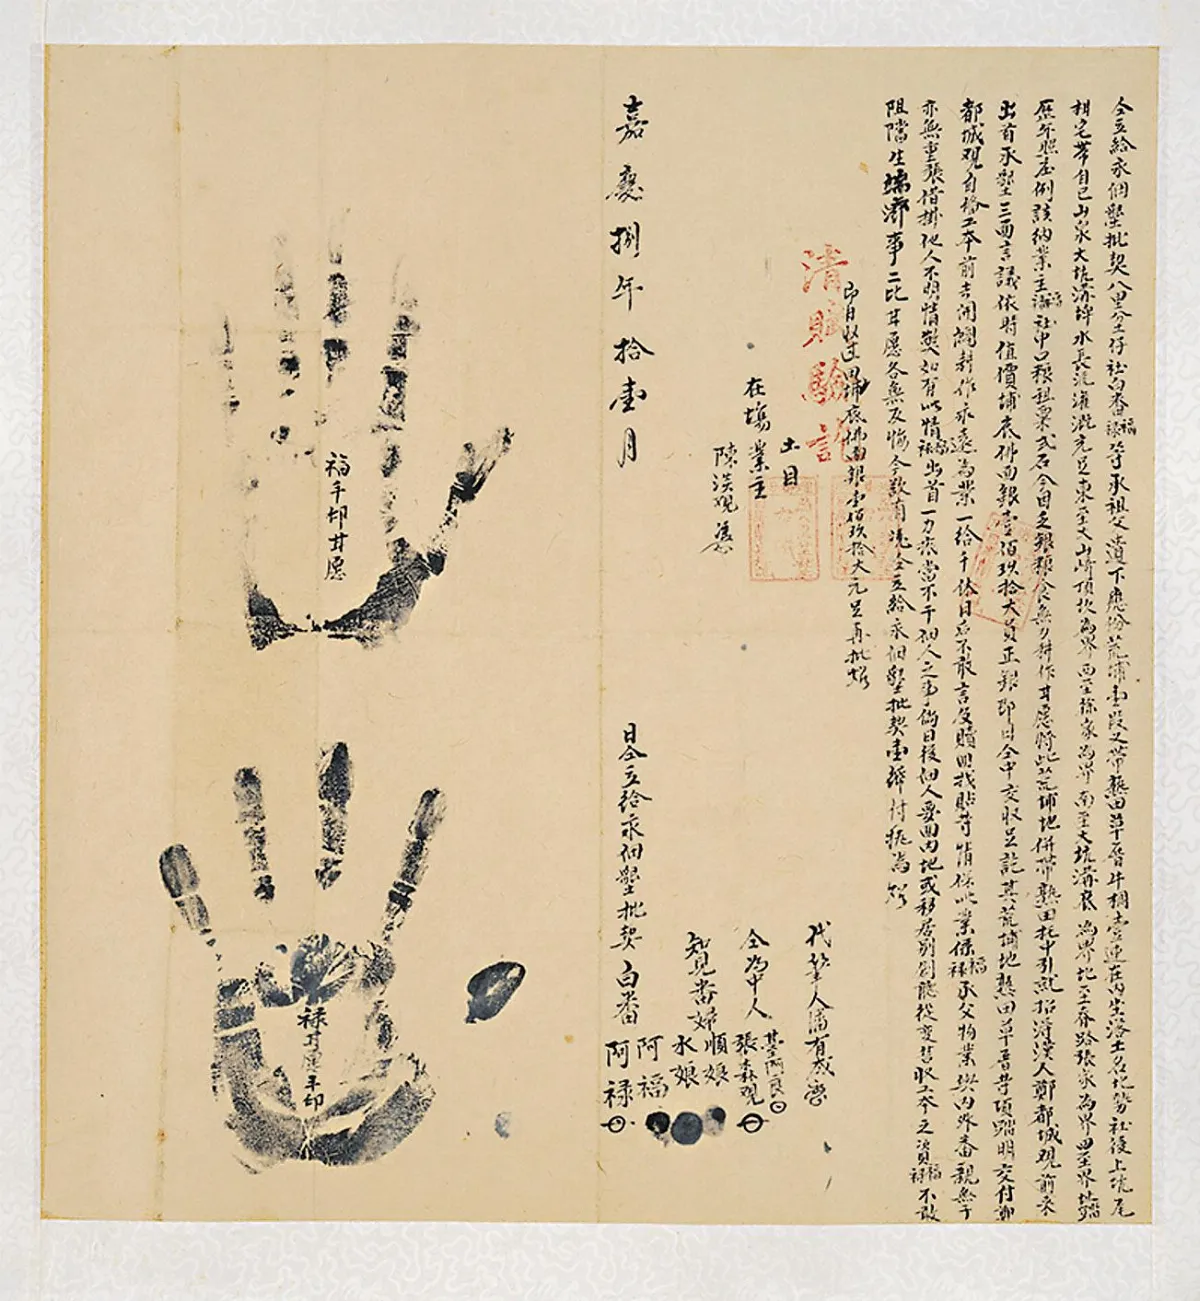 仝立給永佃墾批契八里坌仔社白番福祿等承祖父遺下應份荒埔壹段又帶熟田草厝牛稠壹連在內坐落土名北勢社後上坑尾
相宅帶自己山泉大坑溝埤水長流灌溉充足東至大山崎頂坎為界西至徐家為界南至大坑溝底為界北至莽路張家為界四至界址踏
歷年照庄例該納業主社中口粮租粟弍石今因乏銀糧食無力耕作甘愿將此荒埔地併帶熟田托中引就招得漢人鄭都城觀前來
出首承墾三面言議依時值價埔底佛面銀壹佰玖拾大員正銀即日仝中交收足訖其荒埔地熟田草厝等項踏明交付鄭
都城觀自備工本前去開闢耕作永遠為業一給千休日后不敢言及贖回找貼等情保此業保福祿承父物業與內外番親無干
亦無重張借掛他人不明情獘如有此情福祿出首一力抵當不干佃人之事倘日後佃人要回內地或移居別創聽從變賣收工本之資福祿不敢
阻擋生端滋事二比甘愿各無反悔今欲有憑仝立給永佃墾批契壹紙付執為炤
即日收過田埔底佛面銀壹佰玖拾大元足再批炤
清賦驗訖
代筆人潘有成
土目
在塲業主
仝為中人
阿良
張森觀
陳漢觀
智見番婦
順娘
水娘
嘉慶捌年拾壹月
日仝立給永佃墾批契白番
阿福
阿祿
福手印甘愿
祿甘愿手印